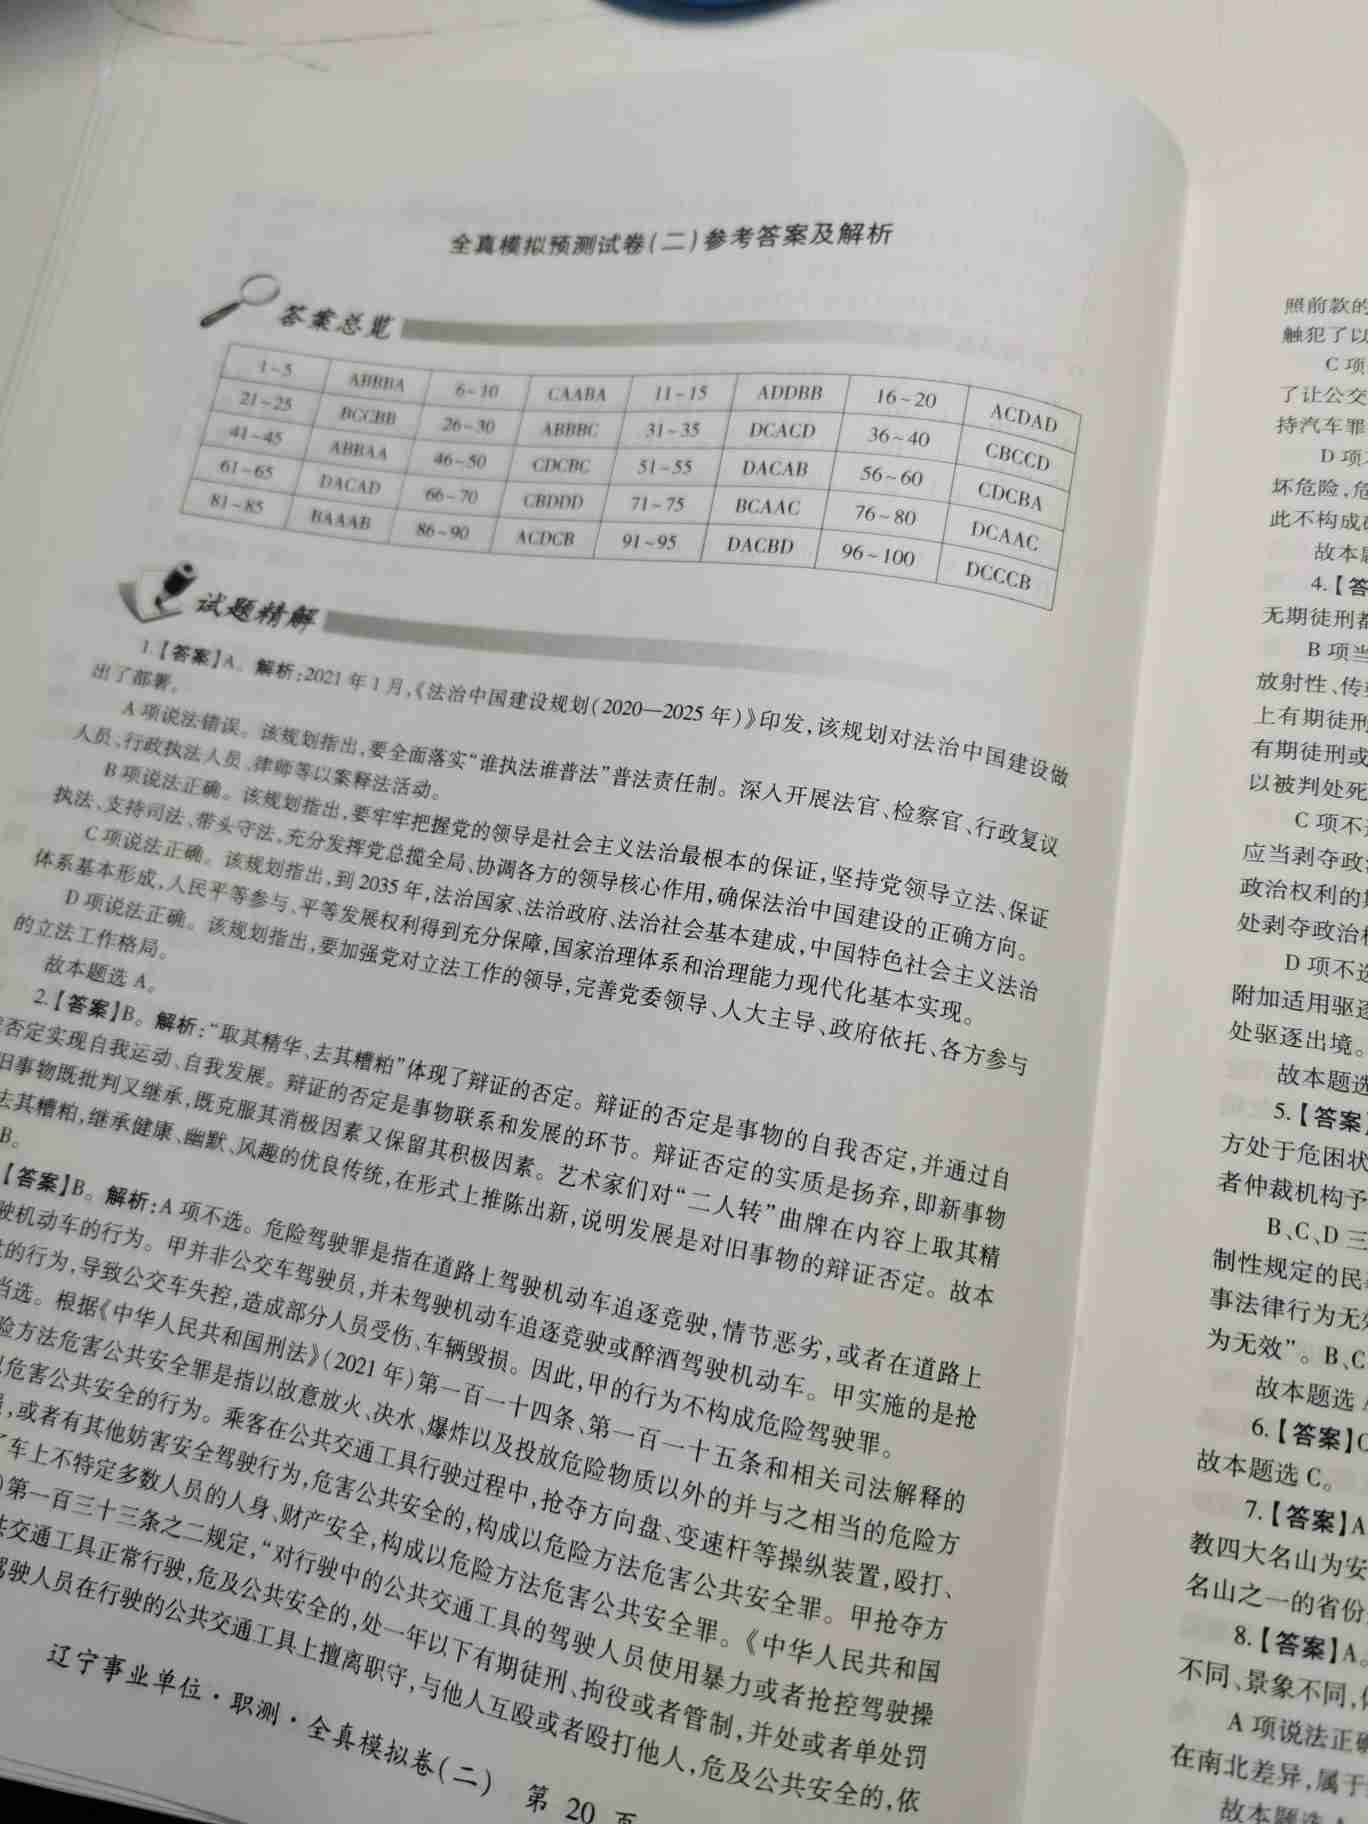 全真模拟预测试卷(二)参考答案及解析
答案总览
1~5 ABBBA 6~10 CAABA 11~15 ADDBB 16~20 ACDAD
21~25 BCCBB 26~30 ABBBC 31~35 DCACD 36~40 CBCCD
41~45 ABBAA 46~50 CDCBC 51~55 DACAB 56~60 CDCBA
61~65 DACAD 66~70 CBDDD 71~75 BCAAC 76~80 DCAAC
81~85 BAAAB 86~90 ACDCB 91~95 DACBD 96~100 DCCCB
试题精解
1.【答案】A。解析:2021年1月,《法治中国建设规划(2020—2025年)》印发,该规划对法治中国建设做
出了部署。
A项说法错误。该规划指出,要全面落实“谁执法谁普法”普法责任制。深入开展法官、检察官、行政复议
人员、行政执法人员、律师等以案释法活动。
B项说法正确。该规划指出,要牢牢把握党的领导是社会主义法治最根本的保证,坚持党领导立法、保证
执法、支持司法、带头守法,充分发挥党总揽全局、协调各方的领导核心作用,确保法治中国建设的正确方向。
C项说法正确。该规划指出,到2035年,法治国家、法治政府、法治社会基本建成,中国特色社会主义法治
体系基本形成,人民平等参与、平等发展权利得到充分保障,国家治理体系和治理能力现代化基本实现。
D项说法正确。该规划指出,要加强党对立法工作的领导,完善党委领导、人大主导、政府依托、各方参与
的立法工作格局。
故本题选A。
2.【答案】B。解析:“取其精华、去其糟粕”体现了辩证的否定。辩证的否定是事物的自我否定,并通过自
否定实现自我运动、自我发展。辩证的否定是事物联系和发展的环节。辩证否定的实质是扬弃,即新事物
旧事物既批判又继承,既克服其消极因素又保留其积极因素。艺术家们对“二人转”曲牌在内容上取其精
去其糟粕,继承健康、幽默、风趣的优良传统,在形式上推陈出新,说明发展是对旧事物的辩证否定。故本
B。
【答案】B。解析:A项不选。危险驾驶罪是指在道路上驾驶机动车追逐竞驶,情节恶劣,或者在道路上
驶机动车的行为。甲并非公交车驾驶员,并未驾驶机动车追逐竞驶或醉酒驾驶机动车。甲实施的是抢
的行为,导致公交车失控,造成部分人员受伤、车辆毁损。因此,甲的行为不构成危险驾驶罪。
当选。根据《中华人民共和国刑法》(2021年)第一百一十四条、第一百一十五条和相关司法解释的
险方法危害公共安全罪是指以故意放火、决水、爆炸以及投放危险物质以外的并与之相当的危险方
危害公共安全的行为。乘客在公共交通工具行驶过程中,抢夺方向盘、变速杆等操纵装置,殴打、
,或者有其他妨害安全驾驶行为,危害公共安全的,构成以危险方法危害公共安全罪。甲抢夺方
车上不特定多数人员的人身、财产安全,构成以危险方法危害公共安全罪。《中华人民共和国
)第一百三十三条之二规定,“对行驶中的公共交通工具的驾驶人员使用暴力或者抢控驾驶操
共交通工具正常行驶,危及公共安全的,处一年以下有期徒刑、拘役或者管制,并处或者单处罚
驾驶人员在行驶的公共交通工具上擅离职守,与他人互殴或者殴打他人,危及公共安全的,依
辽宁事业单位·职测·全真模拟卷(二) 第20页
照前款的
触犯了以
C项
了让公交
持汽车罪
D项
坏危险,危
此不构成
故本题
4.【答
无期徒刑
B项当
放射性、传
上有期徒刑
有期徒刑或
以被判处死
C项不
应当剥夺政
政治权利的
处剥夺政治
D项不选
附加适用驱逐
处驱逐出境。
故本题选
5.【答案】
方处于危困状
者仲裁机构予
B、C、D三
制性规定的民
事法律行为无效
为无效”。B、C
故本题选
6.【答案】C
故本题选C。
7.【答案】A
教四大名山为安
名山之一的省份
8.【答案】A。
不同、景象不同,
A项说法正确
在南北差异,属于
故本题选